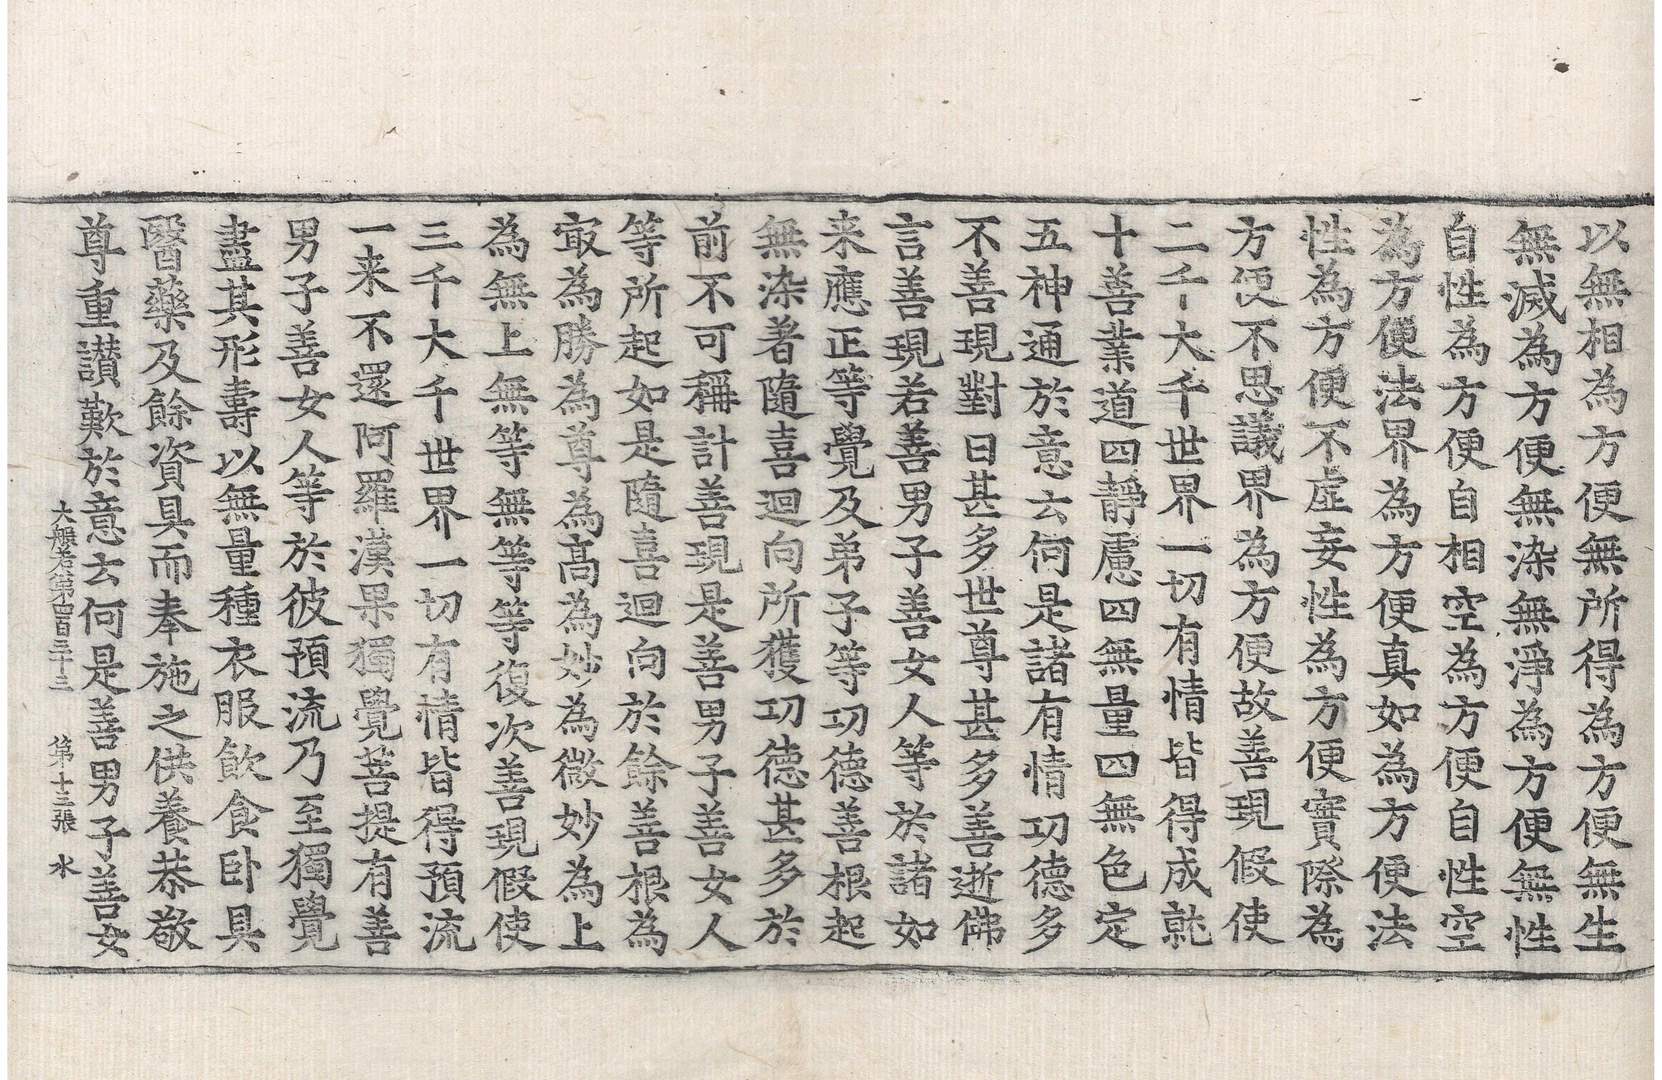 以無相為方便無所得為方便無生
無滅為方便無染無淨為方便無性
自性為方便自相空為方便自性空
為方便法界為方便真如為方便法
性為方便不虛妄性為方便實際為
方便不思議界為方便故善現假使
三千大千世界一切有情皆得成就
十善業道四靜慮四無量四無色定
五神通於意云何是諸有情功德多
不善現對曰甚多世尊甚多善逝佛
言善現若善男子善女人等於諸如
来應正等覺及弟子等功德善根起
無染著隨喜迴向所獲功德甚多於
前不可稱計善現是善男子善女人
等所起如是隨喜迴向於餘善根為
冣為勝為尊為高為妙為微妙為上
為無上無等無等等復次善現假使
三千大千世界一切有情皆得預流
一来不還阿羅漢果獨覺菩提有善
男子善女人等於彼預流乃至獨覺
盡其形壽以無量種衣服飲食卧具
醫藥及餘資具而奉施之供養恭敬
尊重讃歎於意云何是善男子善女
大般若第四百三十三 第十三張 水